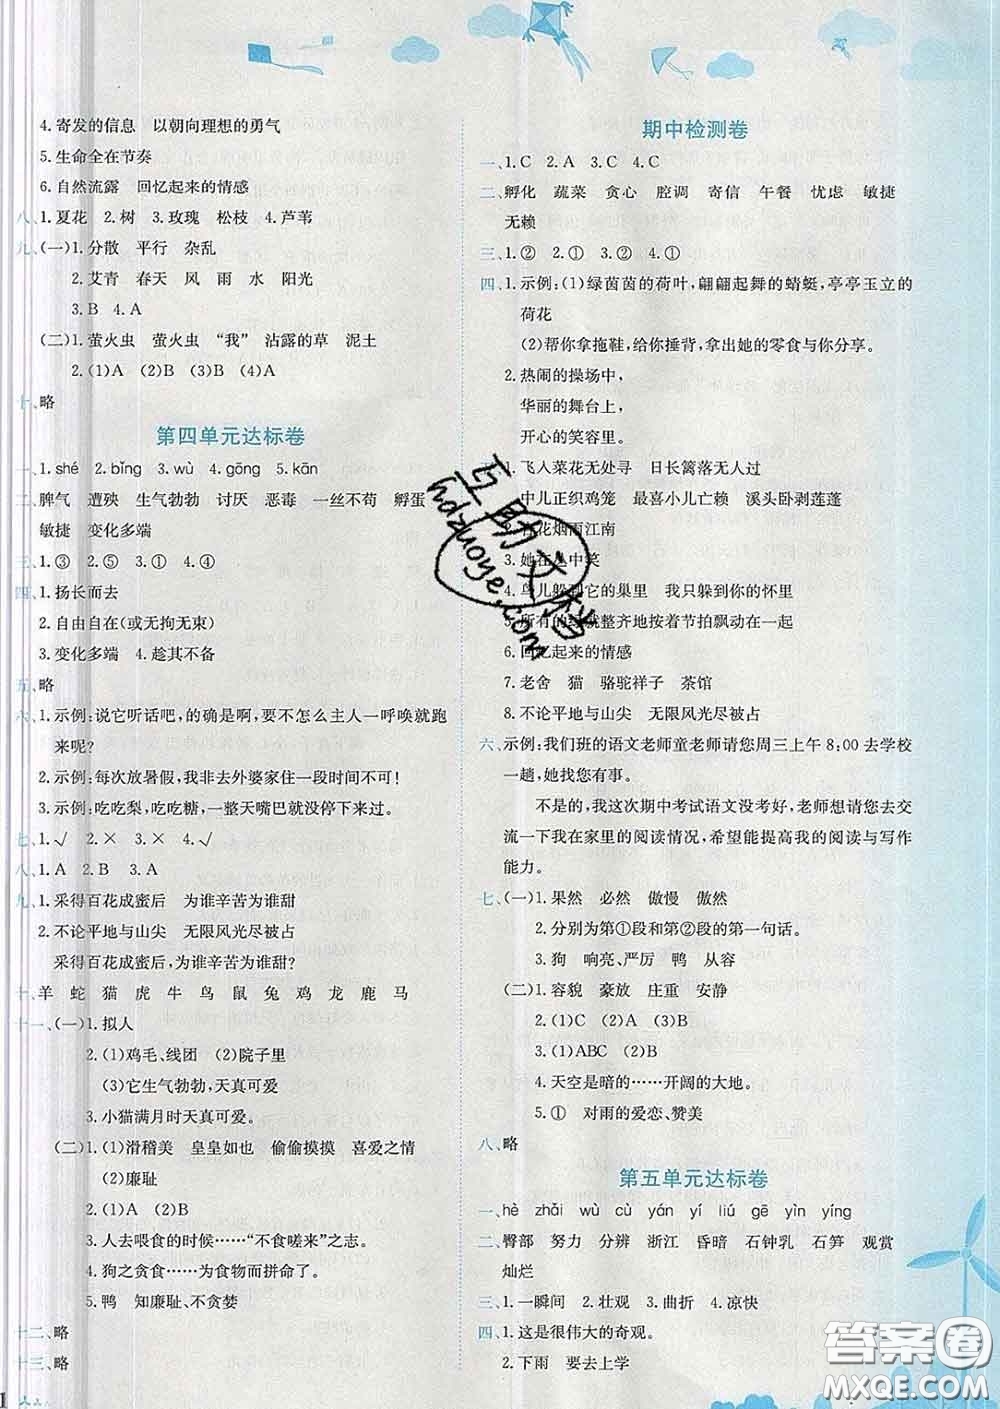 4.寄发的信息　以朝向理想的勇气
5.生命全在节奏
6.自然流露　回忆起来的情感
八、1.夏花　2.树　3.玫瑰　松枝　4.芦苇
九、(一)1.分散　平行　杂乱
2.艾青　春天　风　雨　水　阳光
3.B　4.A
(二)1.萤火虫　萤火虫　“我”　沾露的草　泥土
2.(1)A　(2)B　(3)B　(4)A
十、略
第四单元达标卷
一、1.shé　2.bǐng　3.wù　4.gōng　5.kān
二、脾气　遭殃　生气勃勃　讨厌　恶毒　一丝不苟　孵蛋
敏捷　变化多端
三、1.③　2.⑤　3.①　4.②　5.④
四、1.扬长而去
2.自由自在(或无拘无束)
3.变化多端　4.趁其不备
五、略
六、1.示例:说它听话吧,的确是啊,要不怎么主人一呼唤就跑
来呢?
2.示例:每次放暑假,我非去外婆家住一段时间不可!
3.示例:吃吃梨,吃吃糖,一整天嘴巴就没停下来过。
七、1.√　2.×　3.×　4.√
八、1.A　2.B　3.A
九、1.采得百花成蜜后　为谁辛苦为谁甜
2.不论平地与山尖　无限风光尽被占
采得百花成蜜后,为谁辛苦为谁甜?
十、羊　蛇　猫　虎　牛　鸟　鼠　兔　鸡　龙　鹿　马
十一、(一)1.拟人
2.(1)鸡毛、线团　(2)院子里
(3)它生气勃勃,天真可爱
3.小猫满月时天真可爱。
(二)1.(1)滑稽美　皇皇如也　偷偷摸摸　喜爱之情
(2)廉耻
2.(1)A　(2)B
3.人去喂食的时候……“不食嗟来”之志。
4.狗之贪食……为食物而拼命了。
5.鸭　知廉耻、不贪婪
十二、略
十三、略
期中检测卷
一、1.C　2.A　3.C　4.C
二、孵化　蔬菜　贪心　腔调　寄信　午餐　忧虑　敏捷
无赖
三、1.②　2.①　3.②　4.①
四、1.示例:(1)绿茵茵的荷叶,翩翩起舞的蜻蜓,亭亭玉立的
荷花
(2)帮你拿拖鞋,给你捶背,拿出她的零食与你分享。
2.热闹的操场中,
华丽的舞台上,
开心的笑容里。
飞入菜花无处寻　日长篱落无人过
中儿正织鸡笼　最喜小儿亡赖　溪头卧剥莲蓬
2.杏花烟雨江南
3.她在丛中笑
4.鸟儿躲到它的巢里　我只躲到你的怀里
5.所有的绿就整齐地按着节拍飘动在一起
6.回忆起来的情感
7.老舍　猫　骆驼祥子　茶馆
8.不论平地与山尖　无限风光尽被占
六、示例:我们班的语文老师童老师请您周三上午8:00去学校
一趟,她找您有事。
不是的,我这次期中考试语文没考好,老师想请您去交
流一下我在家里的阅读情况,希望能提高我的阅读与写作
能力。
七、(一)1.果然　必然　傲慢　傲然
2.分别为第①段和第②段的第一句话。
3.狗　响亮、严厉　鸭　从容
(二)1.容貌　豪放　庄重　安静
2.(1)C　(2)A　(3)B
3.(1)ABC　(2)B
4.天空是暗的……开阔的大地。
5.①　对雨的爱恋、赞美
八、略
第五单元达标卷
一、hè　zhǎi　wù　cù　yán　yí　liú　gē　yìn　yíng
二、臀部　努力　分辨　浙江　昏暗　石钟乳　石笋　观赏
灿烂
三、1.一瞬间　2.壮观　3.曲折　4.凉快
四、1.这是很伟大的奇观。
2.下雨　要去上学
互助文档
hdzuoye.com
答案圈
MXQE.COM